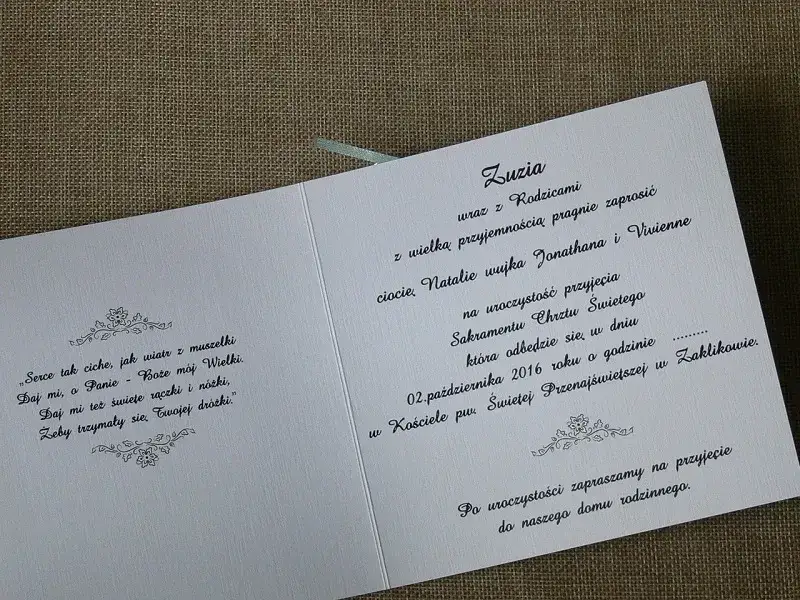 „Serce tak ciche, jak wiatr z muszelki
Daj mi, o Panie - Boże mój Wielki.
Daj mi też święte rączki i nóżki,
Żeby trzymały się Twojej dróżki."
Zuzia
wraz z Rodzicami
z wielką przyjemnością pragnie zaprosić
ciocię Natalie wujka Jonathana i Vivienne
na uroczystość przyjęcia
Sakramentu Chrztu Świętego
która odbędzie się w dniu
02.października 2016 roku o godzinie .........
w Kościele pw. Świętej Przenajświętszej w Zaklikowie.
Po uroczystości zapraszamy na przyjęcie
do naszego domu rodzinnego.